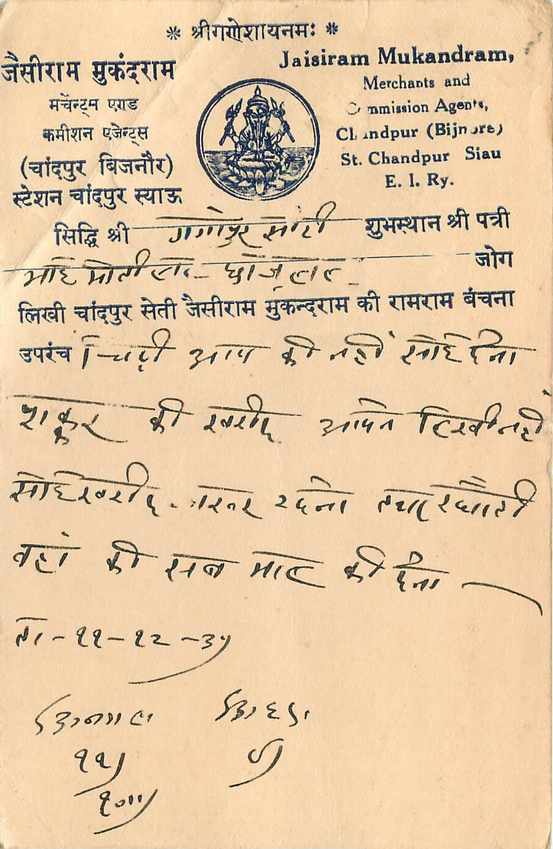 * श्रीगणेशायनमः *
जैसीराम मुकंदराम
मर्चेन्ट्स एण्ड
कमीशन एजेन्ट्स
(चांदपुर बिजनौर)
स्टेशन चांदपुर स्याऊ
Jaisiram Mukandram,
Merchants and
mmission Agents,
Ch ndpur (Bijnore)
St. Chandpur Siau
E. I. Ry.
सिद्धि श्री गंगापुर सीटी शुभस्थान श्री पत्री
भाई मोतीलाल जोग
लिखी चांदपुर सेती जैसीराम मुकन्दराम की रामराम बंचना
उपरंच चिट्ठी आप की नहीं सो देना
की खरीद आपने लिखी नहीं
सो खरीद रहना तथा
वहां की सब माल की देना
ता-११-१२-३५
११)
१०॥)